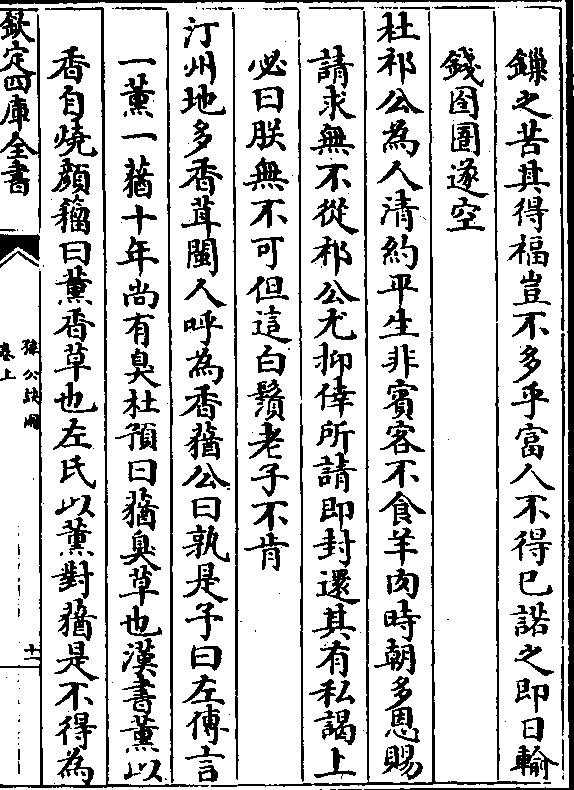 鏁之苦其得福豈不多乎富人不得已諾之即日輸
錢囹圄遂空
杜祁公為人清約平生非賓客不食羊肉時朝多恩賜
請求無不從祁公尤抑倖所請即封還其有私謁上
必曰朕無不可但這白鬚老子不肯
汀州地多香茸閩人呼為香蕕公曰孰是予曰左傳言
一薰一蕕十年尚有臭杜預曰蕕臭草也漢書薰以
香自燒顔籀曰薰香草也左氏以薰對蕕是不得為
欽定四庫全書
孫公談圃
卷上
十一